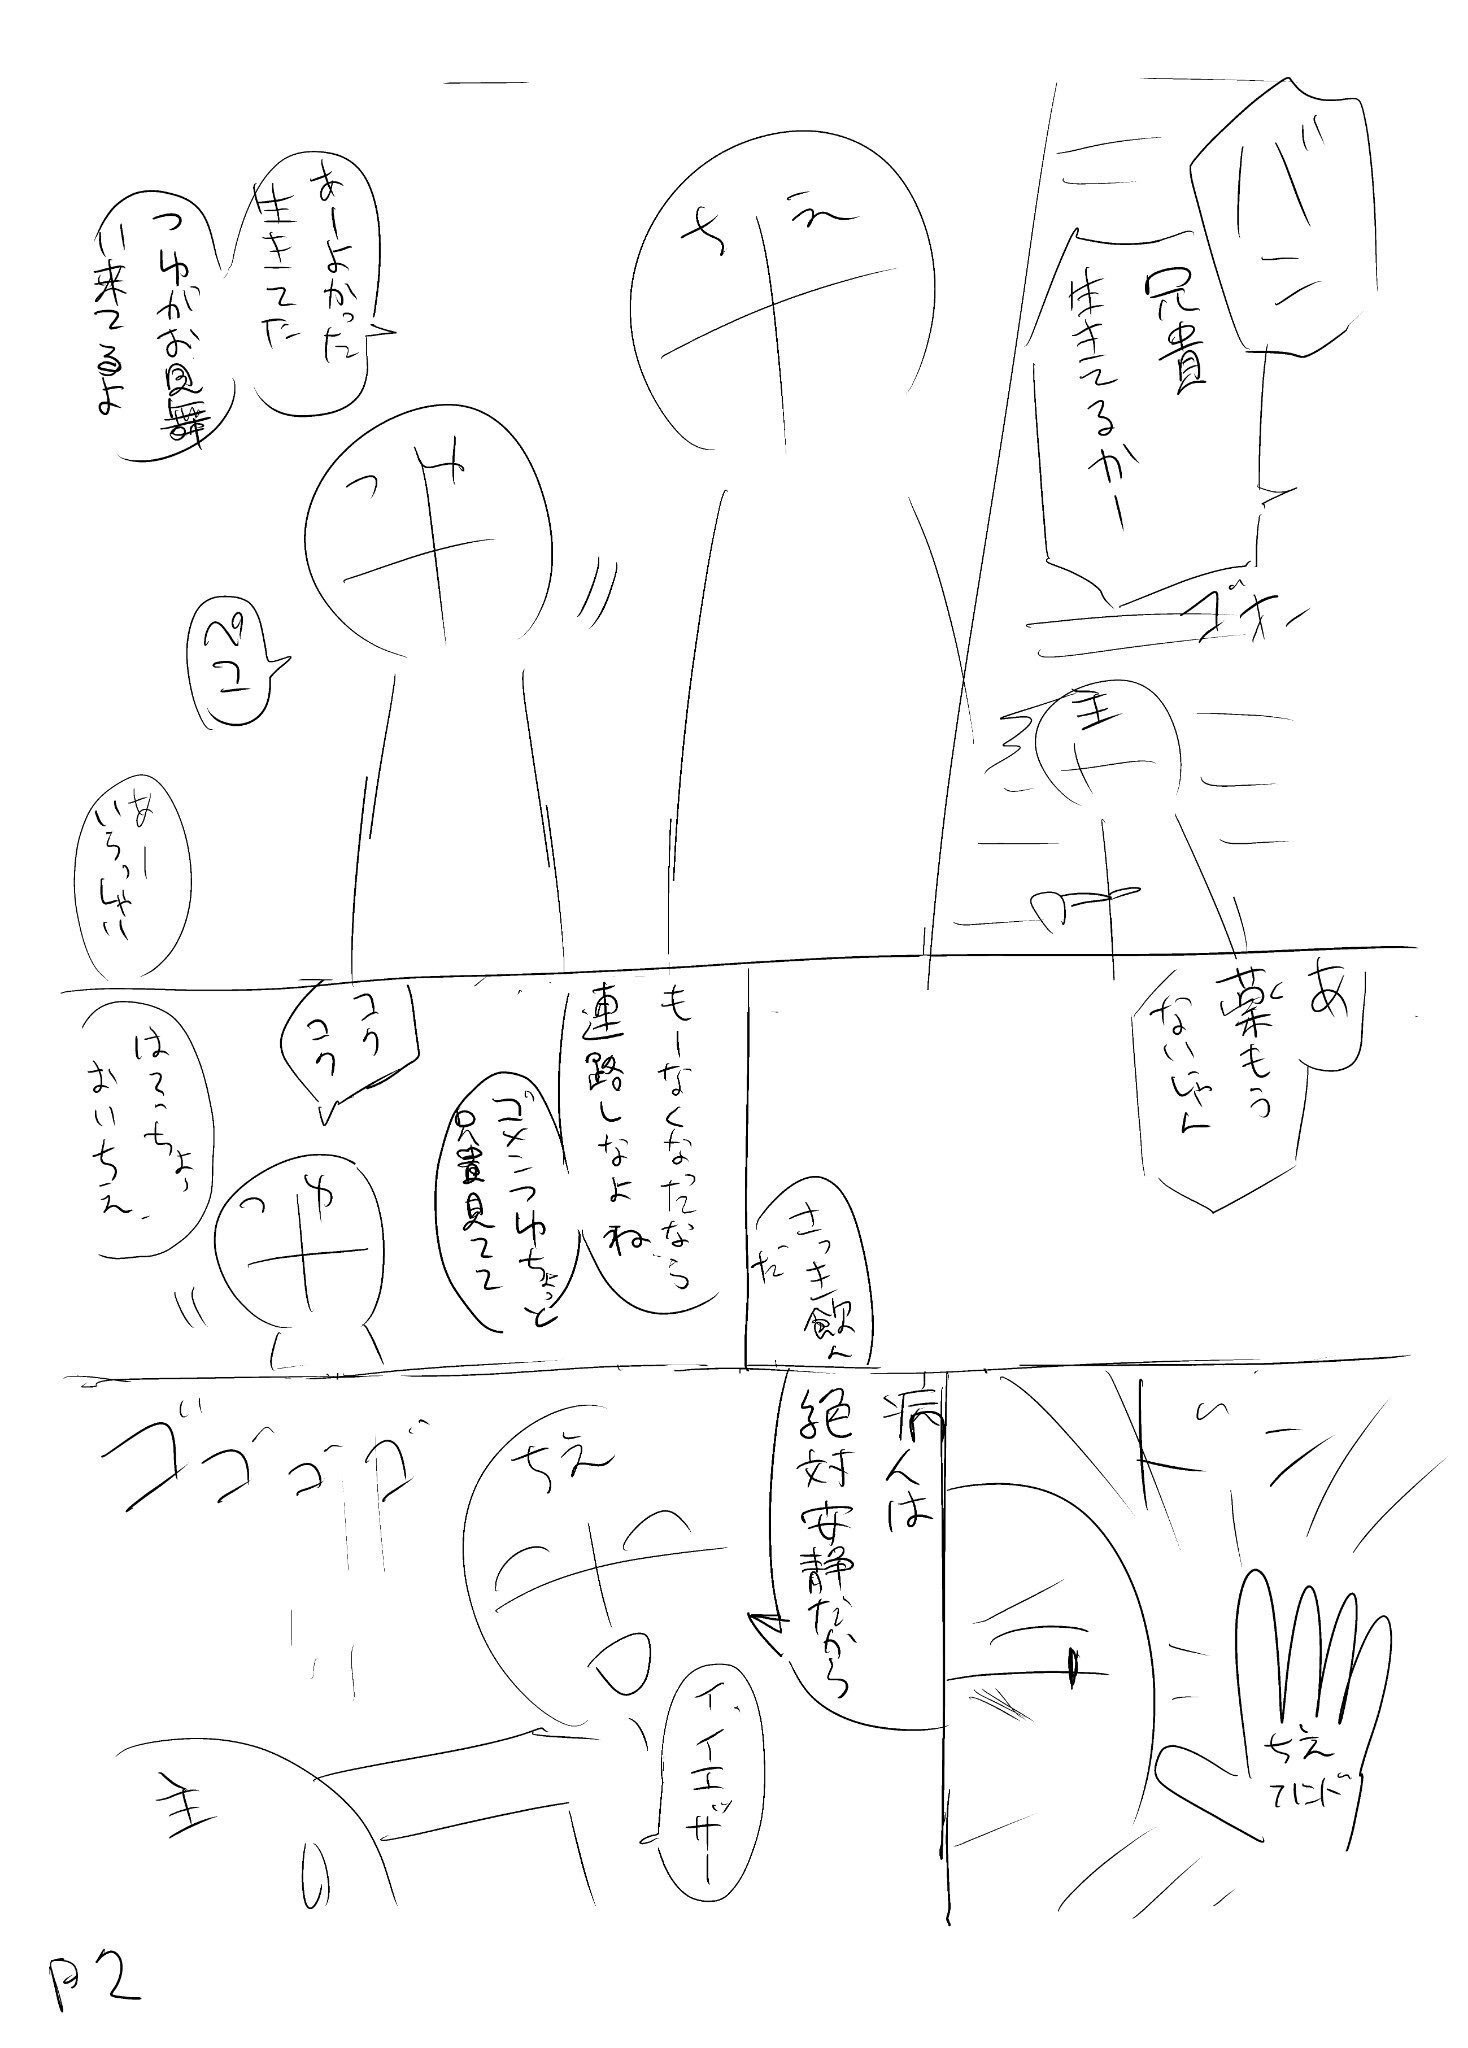 バーン
兄貴
生きてるかー
ゴホン
主
ちえ
あーよかった
生きてた
つゆがお見舞
い来てるよ
つゆ
ペコ
あー
いらっしゃい
あ
薬もう
ないじゃん
さっき飲ん
だ
もーなくなったなら
連路しなよね
ゴメンつゆちょっと
兄貴見てて
コク
コク
つゆ
はてっちょっ
おいちえ、
ドーン
ちえ
ハンド
病人は
絶対安静だから
ちえ
ゴゴゴゴ
イ、イエッサー
主
P2